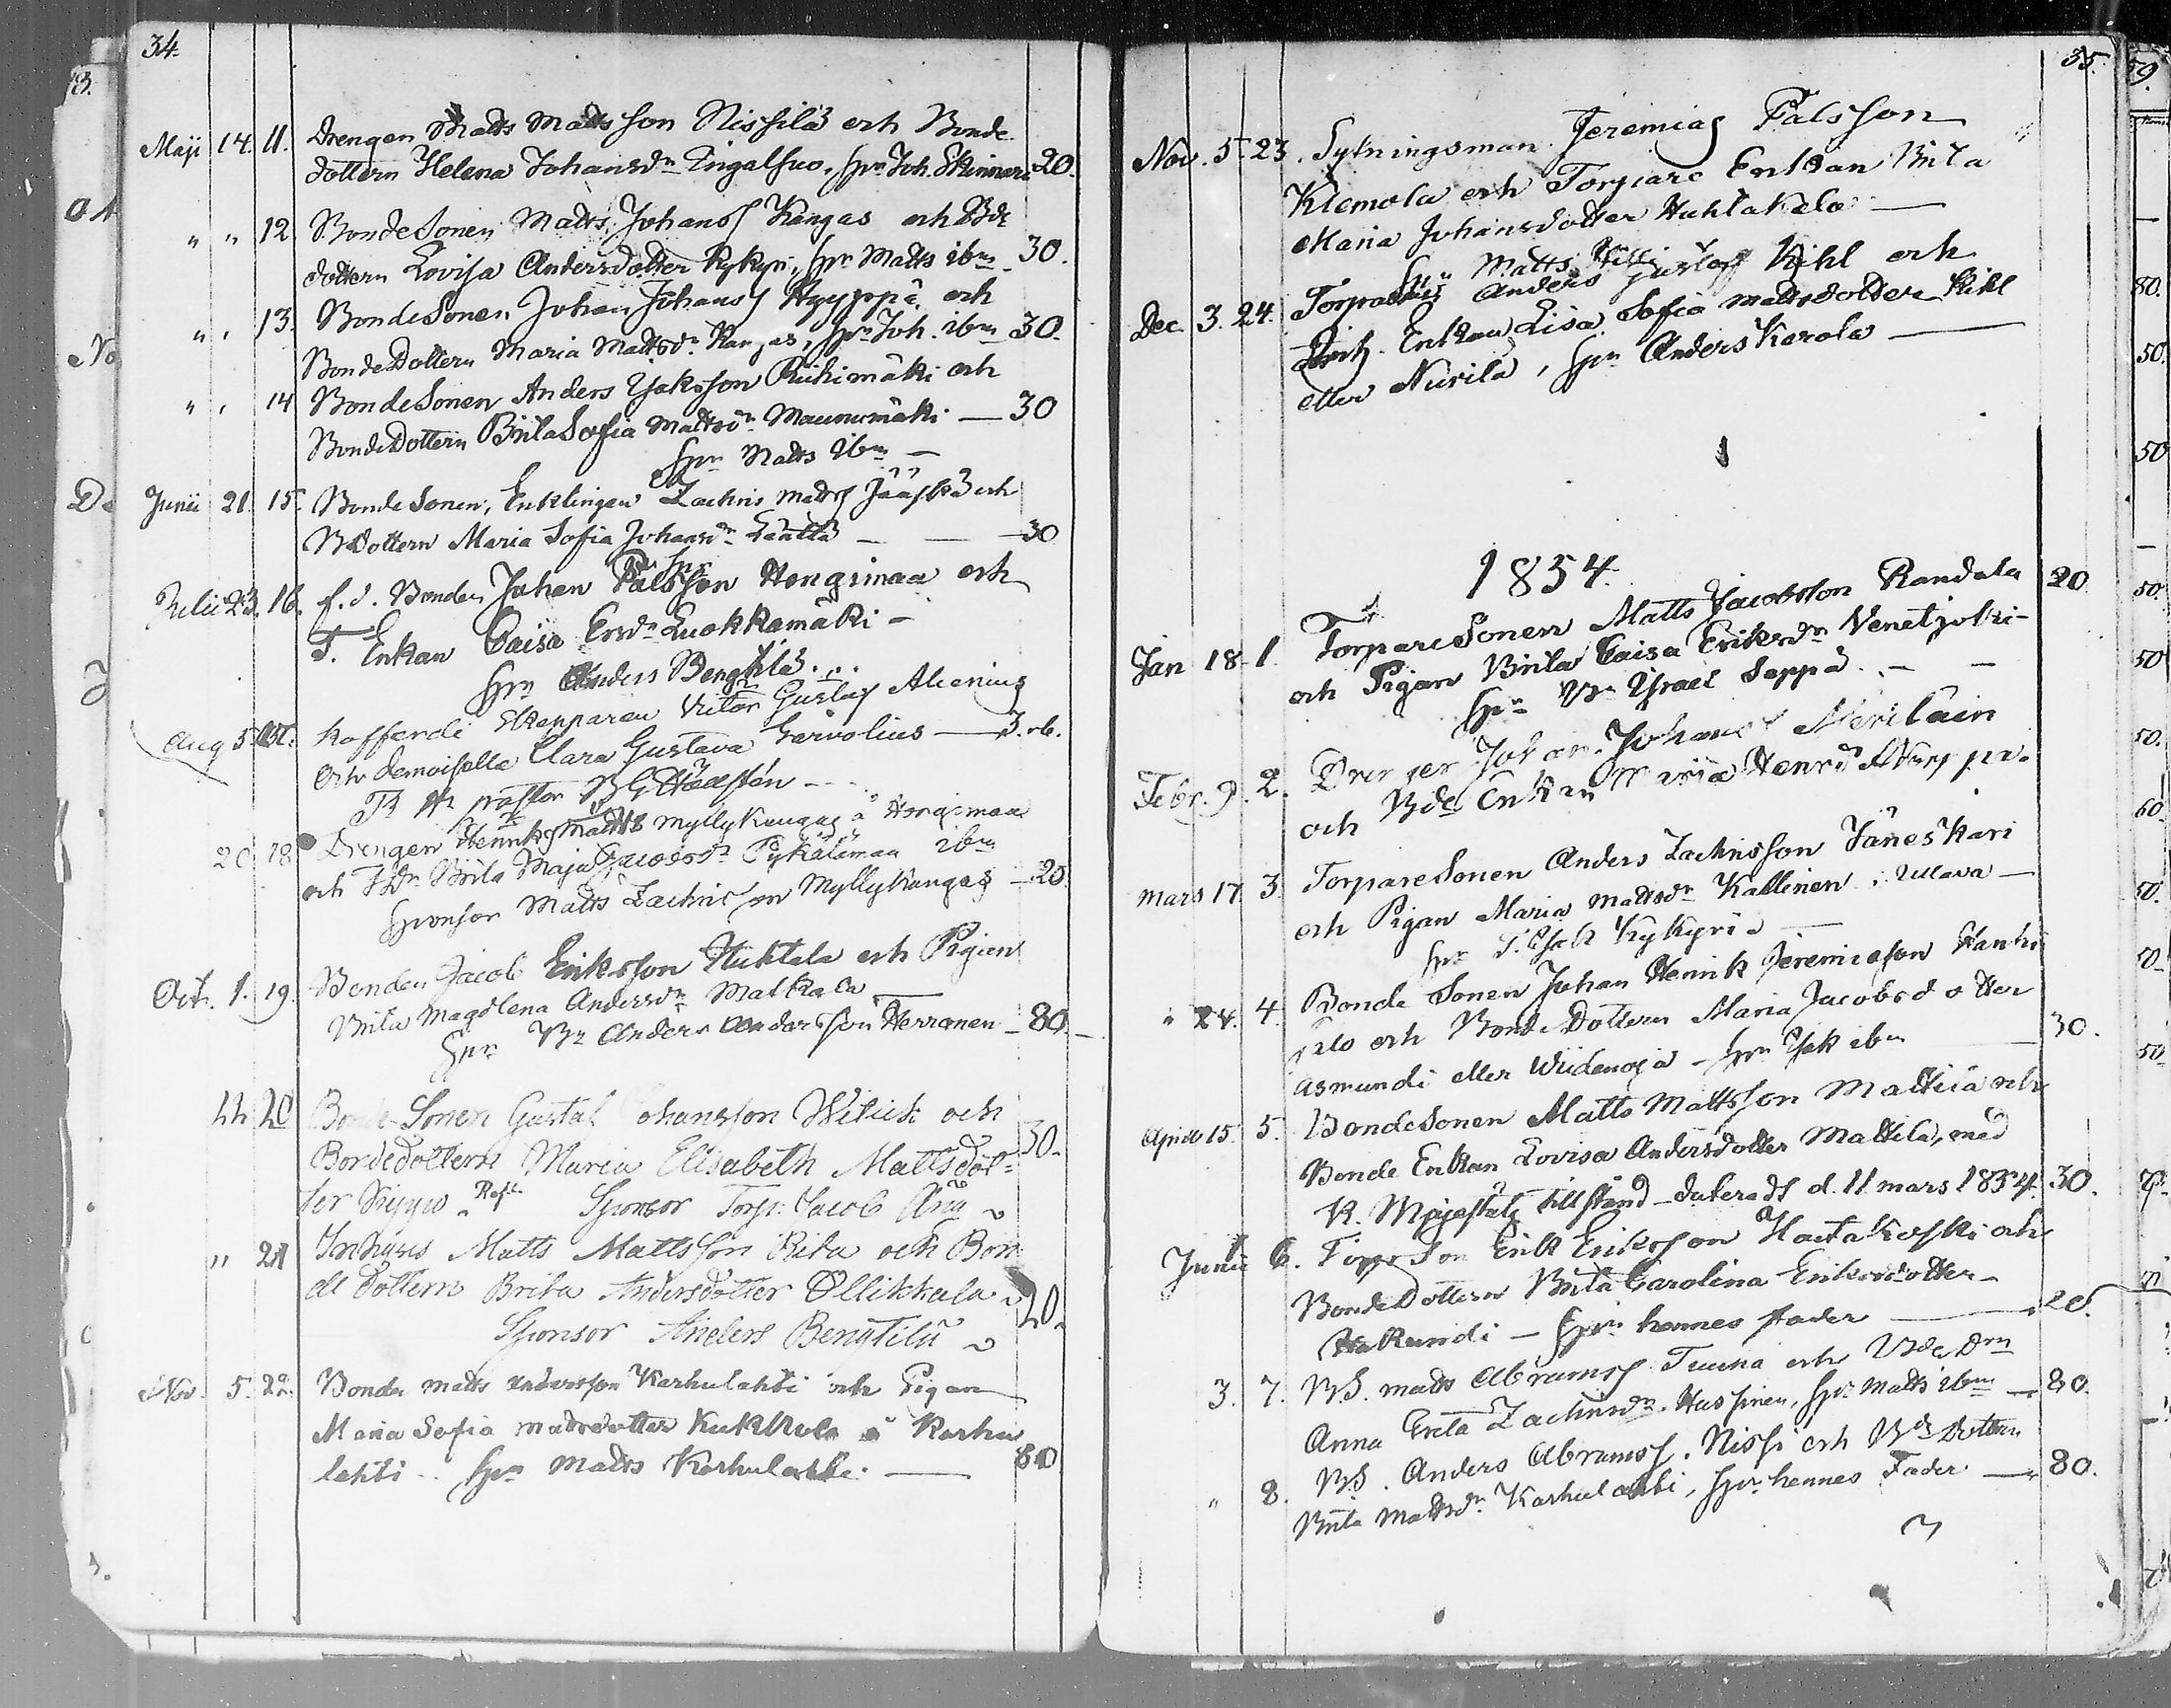 34.
Maji 14. 11. Drengen Matts Mattsson Nissilä och Bonde
dottern Helena Johansdr Tingalsuo, Spr Joh. Skinnari 20.
" " 12. BondeSonen Matts Johanss Kangas och Bde
dottern Lovisa Andersdotter Kykyri, Spr Matts ibm 30.
" " 13. BondeSonen Johan Johanss Hyyppä och
BondeDottern Maria Mattsdr Kangas, Spr Joh. ibm 30.
" " 14 BondeSonen Anders Isaksson Riihimäki och
BondeDottern Brita Sofia Mattsdr Maunumäki — 30
Spr Matts ibm —
Junii 21. 15. Bonde Sonen, Enklingen Zachris Matss Jääskä och
BdDottern Maria Sofia Johansdr Läntta — — 30
Spr
Julii 23. 16. f. d. Bonden Johan Pålsson Hongimaa och
T. Enkan Caisa Ersdr Luokkamäki —
Spr Anders Bengtilä
Aug 5. 17. Koffardi Skepparen Victor Gustaf Alcenius
och demoiselle Clara Gustava Sarvolius — 3. rb.
20. 18 Drengen Henrik Matts Myllykangas å Hongimaa
och TDr Brita Maja Jacobsdr Pykälämaa ibm
Sponsor Matts Zachrisson Myllykangas — 20.
Oct. 1. 19. Bonden Jacob Eriksson Huhtala och Pigan
Brita Magdlena Andersdr Matkala
Spr Br Anders Andersson Herronen — 80.
22 20 Bonde-Sonen Gustaf Johansson Witick och
Bondedottern Maria Elisabeth Mattsdot- 30.
ter Sponsor Torp: Jacob
" 21 Inhyses Matts Mattsson Rita och Bon
de dottern Brita Andersdotter Ollikkala 20.
Sponsor Anders Bengtilä
Nov. 5. 22. Bonde Matts Andersson Karhulahti och Pigan
Maria Sofia Mattsdotter Kukkola å Karhu
lahti. Spr Matts Karhulahti. — 80
35.
Nov. 5. 23. Sytningsman Jeremias Pålsson
Klemola och Torpare Enkan Brita
Maria Johansdotter Huhtakala —
Spr Matts
Dec. 3. 24. Anders Gustaf Kihl och
Enkan Lisa Sofia Mattsdotter Kihl
eller Nurila, Spr Anders Karola —
1834.
Jan 18. 1. TorpareSonen Matts Jacobsson Randala 20.
och Pigan Brita Caisa Eriksdr Venetjoki —
Spr Br Israel Seppä. — —
Febr. 9. 2. Drengen Johan Johans Meriläin
och Bde Enkan Maria Henrsd
Mars 17. 3. TorpareSonen Anders Zachrisson Jäneskari
och Pigan Maria Mattsdr Kallinen i Ullava —
Spr Kykyri —
" 24. 4. Bonde Sonen Johan Henrik Jeremiasson Hanhi
salo och BondeDottern Maria Jacobsdotter
Asmundi eller Wiidenoja — Spr Isak ibm 30.
April 15. 5. BondeSonen Matts Mattsson Mattila och
Bonde Enkan Lovisa Andersdotter Mattila, med
K. Majestäts tillstånd dateradt d. 11 mars 1834. 30.
Junii 1 6. Erik Eriksson Haatakoski och
BondeDottern Brita Carolina Eriksdotter
Hakundi — Spr hennes fader — 20.
3. 7. BS. Matts Abramss Tuuna och Bde Dr
Anna Greta Zachrisdr Hassinen, Spr Matts ibm — 80.
" 8. BS. Anders Abramss. Nissi och Bde Dottern
Brita Mattsdr Karhulahti, Spr hennes Fader — 80.